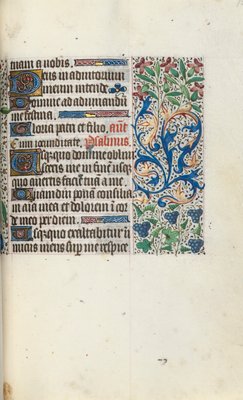 mam a nobis.
Deus in adiutorium
meum intende
Domine ad adiuuandū
me festina.
Gloria patri et filio, ant
cum iocunditate. Psalmus.
Usquequo domine obliui
sceris me in finē usque
quo auertis faciē tuā a me.
Quamdiu ponā consilia
in aīa mea et dolorem ī cor
de meo per diem.
Usquequo exaltabitur ī
micus meus sup me respice